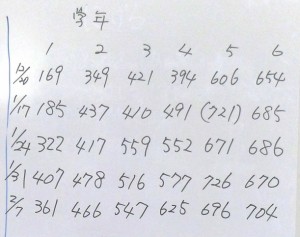 学年
1 2 3 4 5 6
12/20 169 349 421 394 606 654
1/17 185 437 410 491 (721) 685
1/24 322 417 559 552 671 686
1/31 407 478 516 577 726 670
2/7 361 466 547 625 696 704